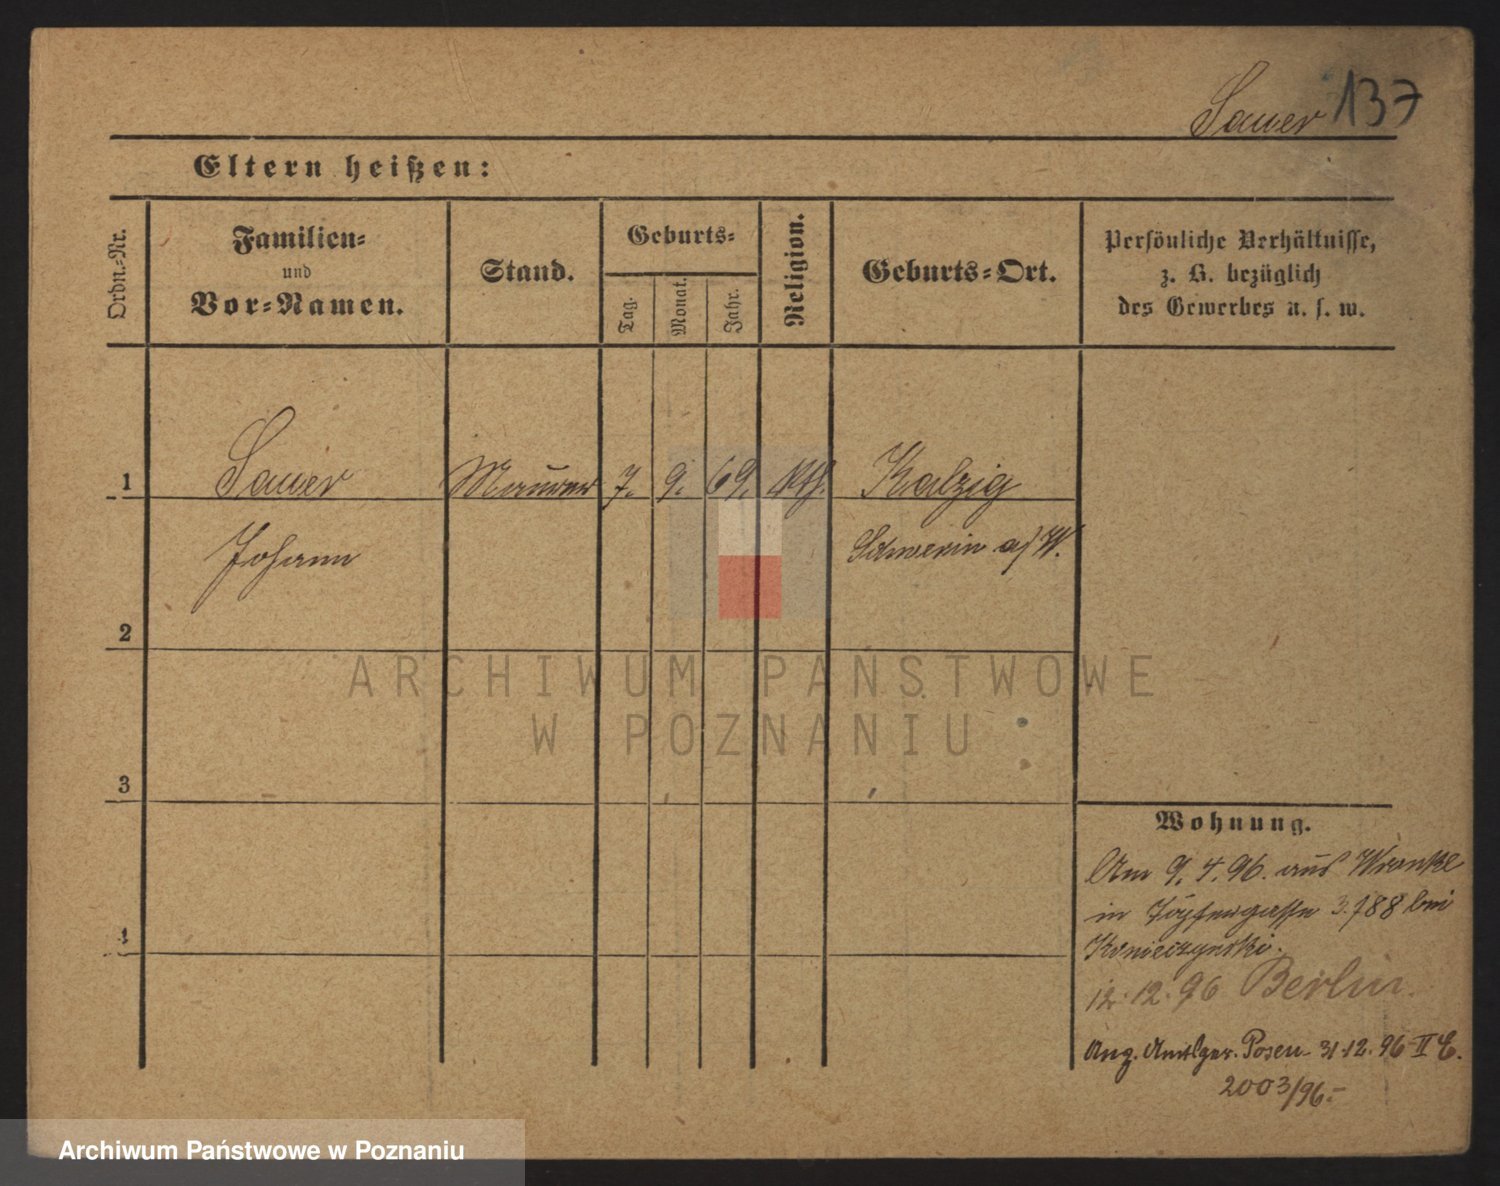 Sauer 137
Eltern heißen:
Ordn.-Nr.
Familien-
und
Vor-Namen.
Stand.
Geburts-
Tag.
Monat.
Jahr.
Religion.
Geburts-Ort.
Persönliche Verhältnisse,
z. B. bezüglich
des Gewerbes u. s. w.
1 Sauer Maurer 7. 9. 69. kth. Kalzig
Johann Schwerin a/W.
2
3
4
ARCHIWUM PAŃSTWOWE
W POZNANIU
Wohnung.
Am 9. 4. 96. aus Wronke
in Töpfergasse 3. /88 bei
Konieczynski.
12. 12. 96 Berlin.
Ang. Amtsger. Posen 31.12.96 II E.
2003/96.-
Archiwum Państwowe w Poznaniu